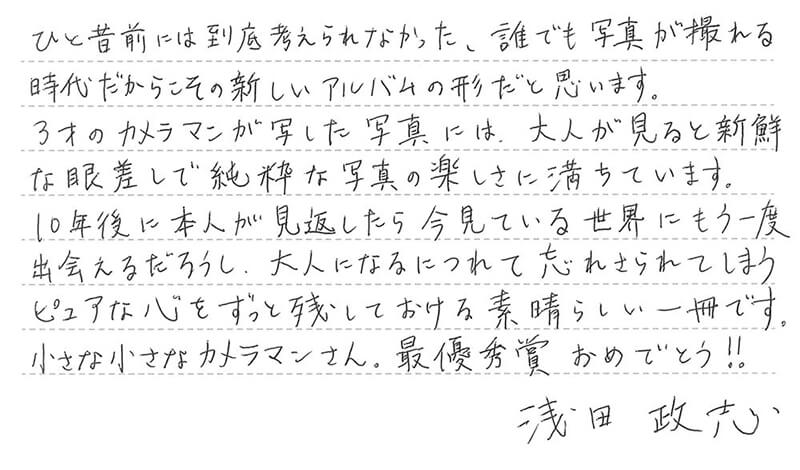 ひと昔前には到底考えられなかった、誰でも写真が撮れる
時代だからこその新しいアルバムの形だと思います。
3才のカメラマンが写した写真には、大人が見ると新鮮
な眼差しで純粋な写真の楽しさに満ちています。
10年後に本人が見返したら今見ている世界にもう一度
出会えるだろうし、大人になるにつれて忘れさられてしまう
ピュアな心をずっと残しておける素晴らしい一冊です。
小さな小さなカメラマンさん。最優秀賞 おめでとう!!
浅田 政志